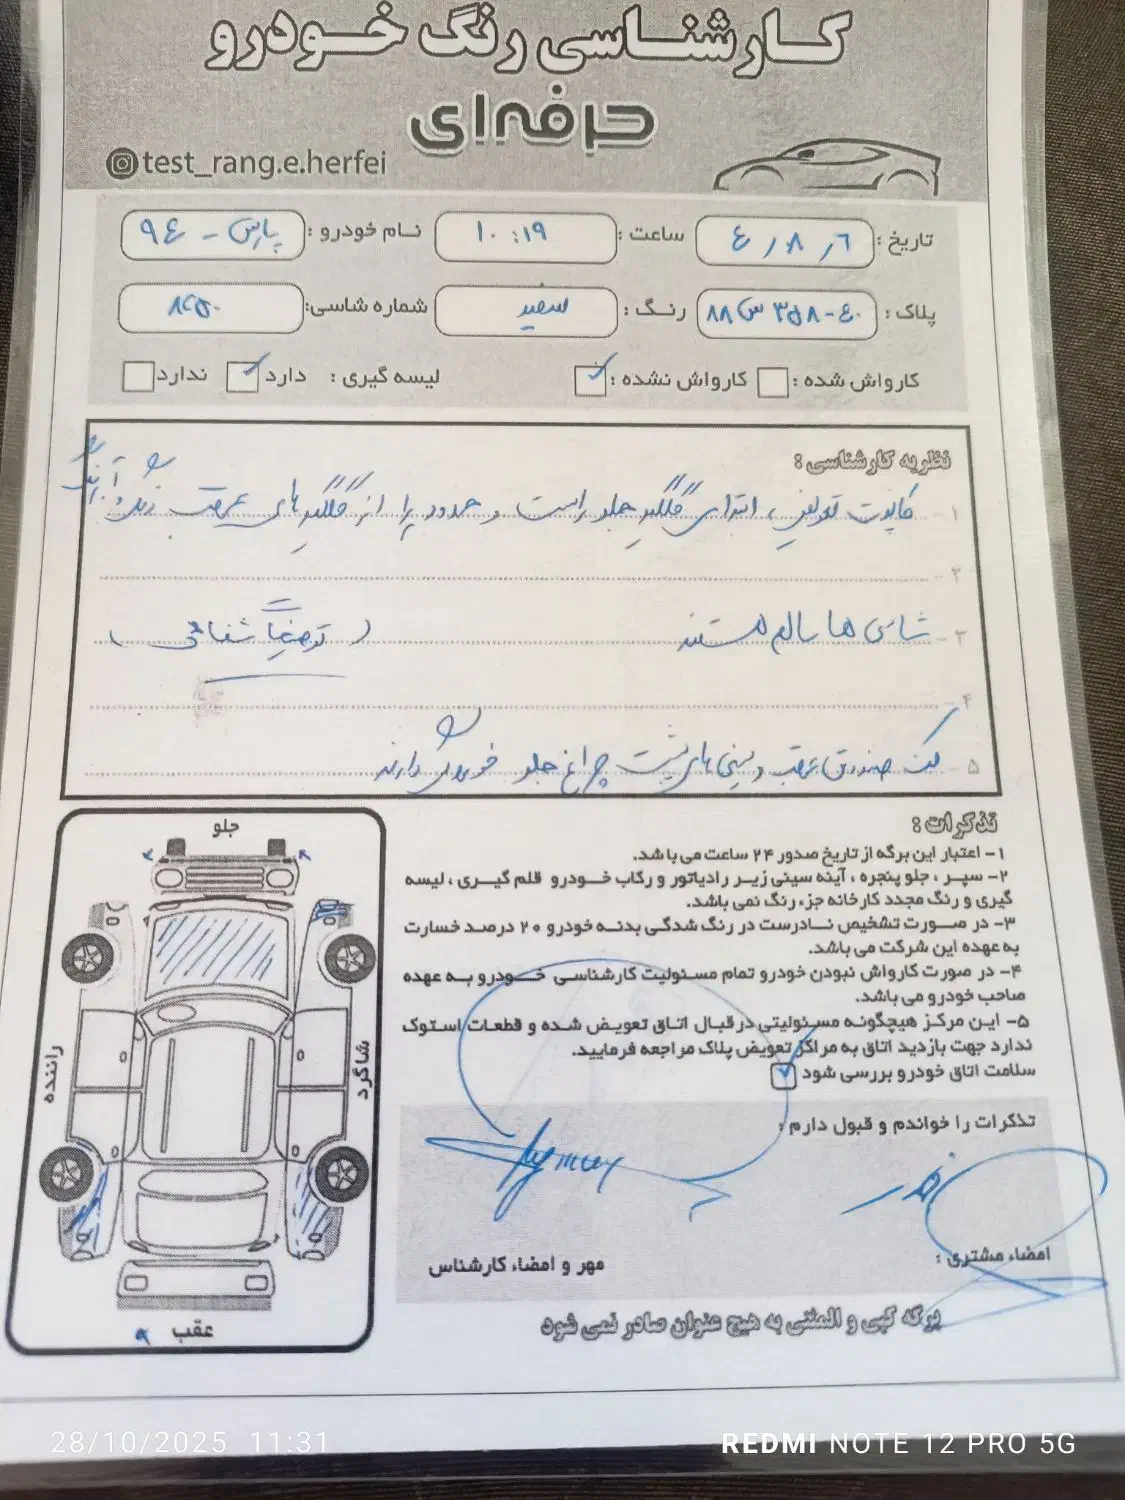 کارشناسی رنگ خودرو
حرفه‌ای
test_rang.e.herfei
تاریخ : ۶ / ۸ / ۴ ساعت : ۱۰:۱۹ نام خودرو : پارس - ۹۴
پلاک : ۴۰ - ۳۵۸ س ۸۸ رنگ : سفید شماره شاسی :
کارواش شده : کارواش نشده : لیسه گیری : دارد ندارد
نظریه کارشناسی :
۱- کاپوت تعویض ، ابتدای گلگیر جلو راست و حدود را از گلگیرهای عقب رنگ و
۲-
۳- شاسی ها سالم هستند ( توضیحاً شفاهی )
۴-
۵- کف صندوق عقب و سینی های پشت چراغ جلو خوردگی دارند
تذکرات :
۱- اعتبار این برگه از تاریخ صدور ۲۴ ساعت می باشد.
۲- سپر ، جلو پنجره ، آینه سینی زیر رادیاتور و رکاب خودرو قلم گیری ، لیسه
گیری و رنگ مجدد کارخانه جزء رنگ نمی باشد.
۳- در صورت تشخیص نادرست در رنگ شدگی بدنه خودرو ۲۰ درصد خسارت
به عهده این شرکت می باشد.
۴- در صورت کارواش نبودن خودرو تمام مسئولیت کارشناسی خودرو به عهده
صاحب خودرو می باشد.
۵- این مرکز هیچگونه مسئولیتی در قبال اتاق تعویض شده و قطعات استوک
ندارد جهت بازدید اتاق به مراکز تعویض پلاک مراجعه فرمایید.
سلامت اتاق خودرو بررسی شود
تذکرات را خواندم و قبول دارم :
امضاء مشتری :
مهر و امضاء کارشناس
برگه کپی و المثنی به هیچ عنوان صادر نمی شود
جلو
راننده
شاگرد
عقب
28/10/2025 11:31
REDMI NOTE 12 PRO 5G